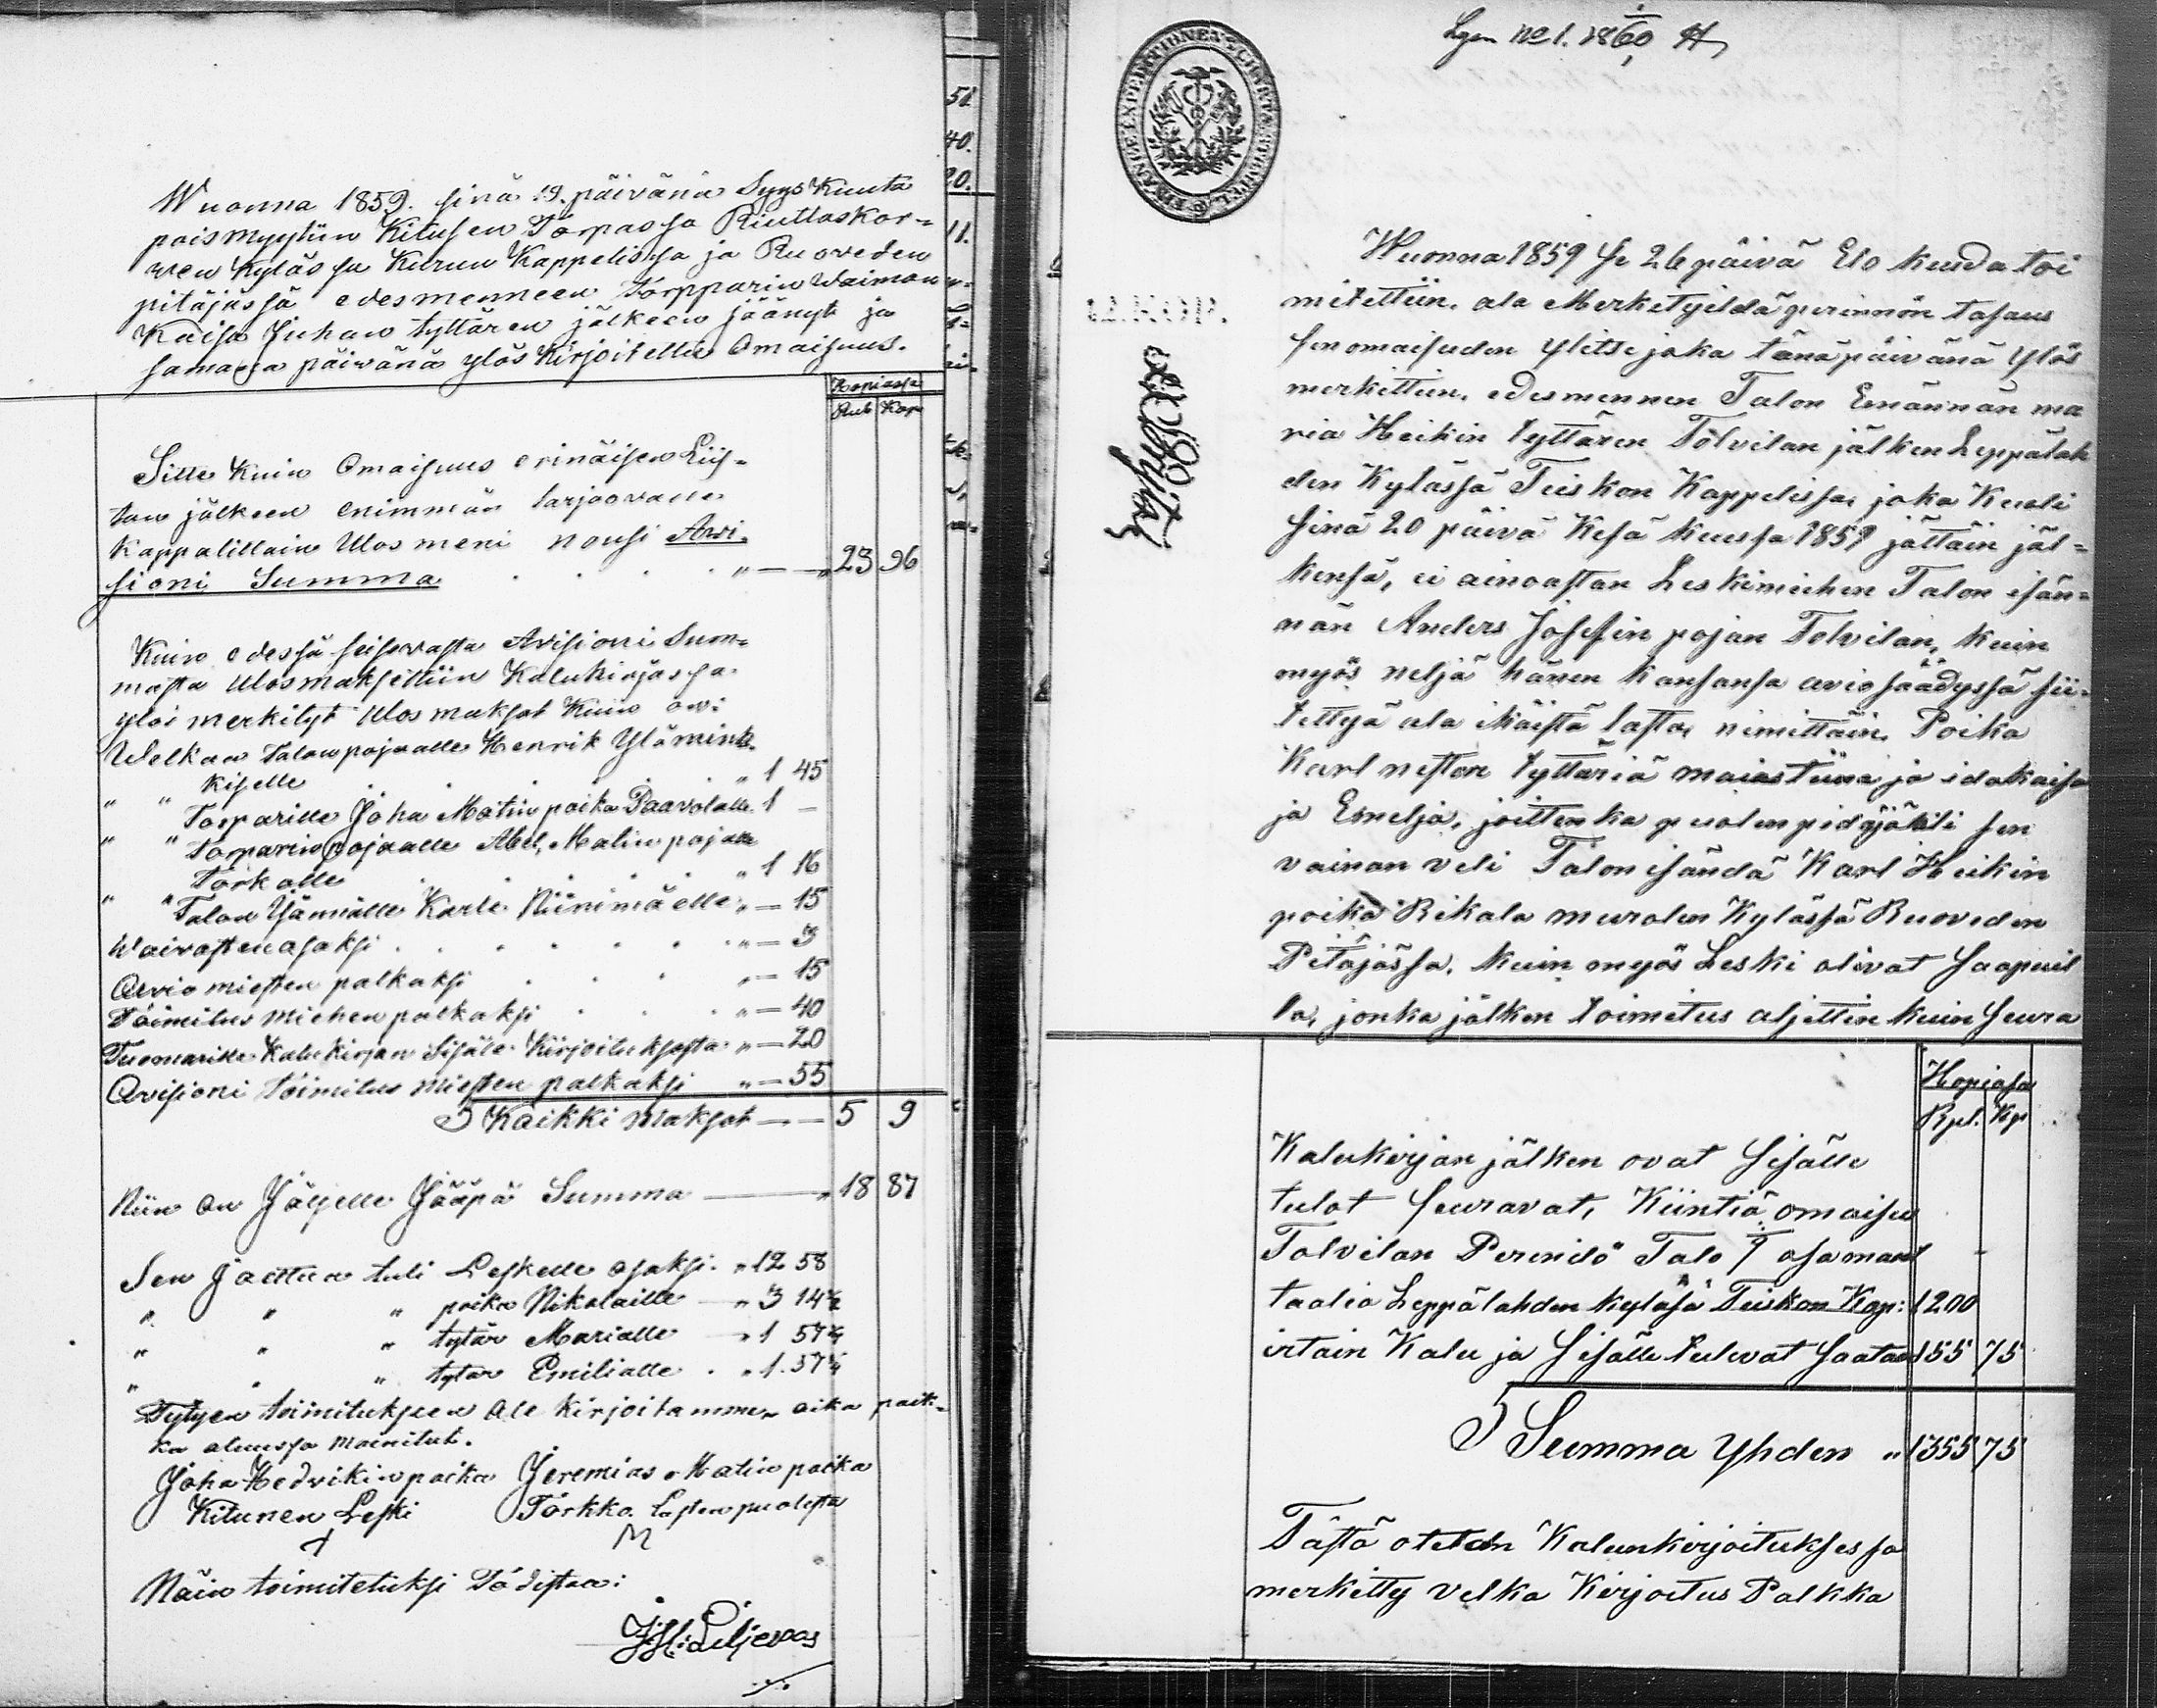 Wuonna 1859. sinä 19. päivänä Syys Kuuta
pois myytiin Kitusen Torpassa Riuttaskor-
wen Kyläsä Kurun Kappelissa ja Ruoveden
pitäjässä edesmenneen Torpparin Waimon
Kaisa Juhan tyttären jälkeen jäänyt ja
samana päivänä ylös kirjoitettu Omaisuus.
Hopiassa
Rub Kop
Sitte kuin Omaisuus erinäisen Liis-
tan jälkeen enimmän tarjoovalle
Kappalittain Ulos meni nousi Awi-
sioni Summa . . . . " — " 23 96
Kuin edessä seisovasta Avisioni Sum-
masta Ulosmaksettiin Kalukirjassa
ylös merkityt Ulos maksot kuin on:
Welkaa Talonpojaalle Henrik Ylömink-
kiselle . . . . . " 1 45
" " Torparille Joha Matin poika Paavolalle 1 —
" " Torparin pojaalle Abel, Matin pojalle
Törkölle . . . . . " 1 16
" " Talon Isännälle Karle Niinimäelle " — 15
Waivasten osaksi . . . . . " — 3
Arvio miesten palkaksi . . . " — 15
Toimitus miehen palkaksi . . . " — 40
Tuomarille Kalukirjan Sisälle Kirjoituksesta " — 20
Avisioni toimitus miesten palkaksi " — 55
S Kaikki maksot — — 5 9
Niin on Jäljelle Jääpä Summa — " 18 87
Sen jaettua tuli Leskelle osaksi. " 12 58
" " " poika Nikolaille — " 3 14½
" " " tytär Marialle — " 1 57¼
" " " tytär Emilialle . " 1. 57¼
Tytyen toimitukseen Ale kirjoitamme, aika paik-
ka alussa mainitut.
Joha Hedvikin poika Jeremias Matin poika
Kitunen Leski Törkkö Lasten puolesta
Näin toimitetuksi Todistaa:
J. H. Liljeroos
Lgen No 1. 1860
FINANCE EXPEDITIONENS CHARTÆ STEMPEL
12. KOP.
Wuonna 1859 se 26 päivä Elo kuuda toi
mitettiin. ala Merketyildä perinnön tasaus
sen omaisuden ylitse joka tänäpäivänä ylös
merkittiin, edesmennen Talon Emännän ma
ria Heikin tyttären Tolvilan jälken Leppälah
den Kylässä Teiskon Kappelissa, joka Kuoli
sinä 20 päivä Kesä kuussa 1859 jättäin jäl-
kensä, ei ainoastan Leskimiehen Talon isän-
nän Anders Josefin pojan Tolvilan, kuin
myös neljä hänen kansansa aviosäädyssä sii-
tettyä ala ikäistä lasta, nimittäin. Poika
Karl nestor tyttäriä maiastiina ja idakaisa
ja Emelja, joittenka puolenpidäjäksi sen
vainan veli Talon isändä Karl Heikin
poika Rikala muroleen Kylässä Ruoveden
Pitäjässä, kuin myös Leski olivat saapuil
la, jonka jälken toimitus aljettiin kuin seura
Hopiasa
Rpl. Kp
Kalukirjan jälken ovat sisälle
tulot seuravat, Kiintiä omaisu
Tolvilan Perindö Talo osa mant
taalia Leppälahden kylässä Teiskon Kap: 1200
irtain Kalu ja sisälle tulevat saatavat 155 75
S Summa Yhden " 1355 75
Tästä otetan Kalunkirjoituksessa
merkitty velka Kirjoitus Palkka